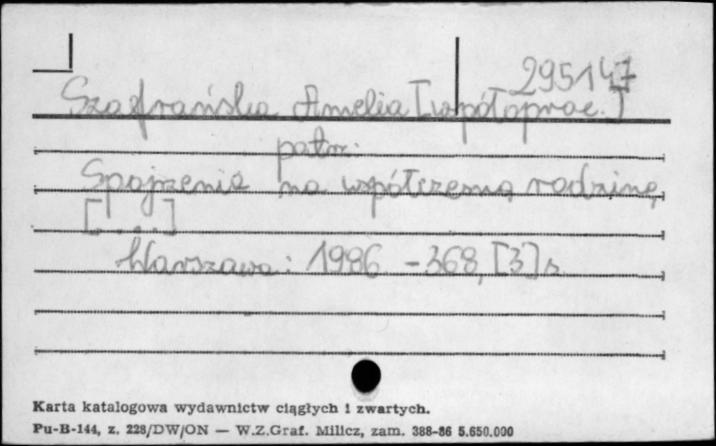 295147
Szafrańska Amelia [współoprac.]
patrz:
Spojrzenie na współczesną rodzinę
[....]
Warszawa: 1986 - 368, [3] s
Karta katalogowa wydawnictw ciągłych i zwartych.
Pu-B-144, z. 228/DW/ON — W.Z.Graf. Milicz, zam. 388-86 5.650.000